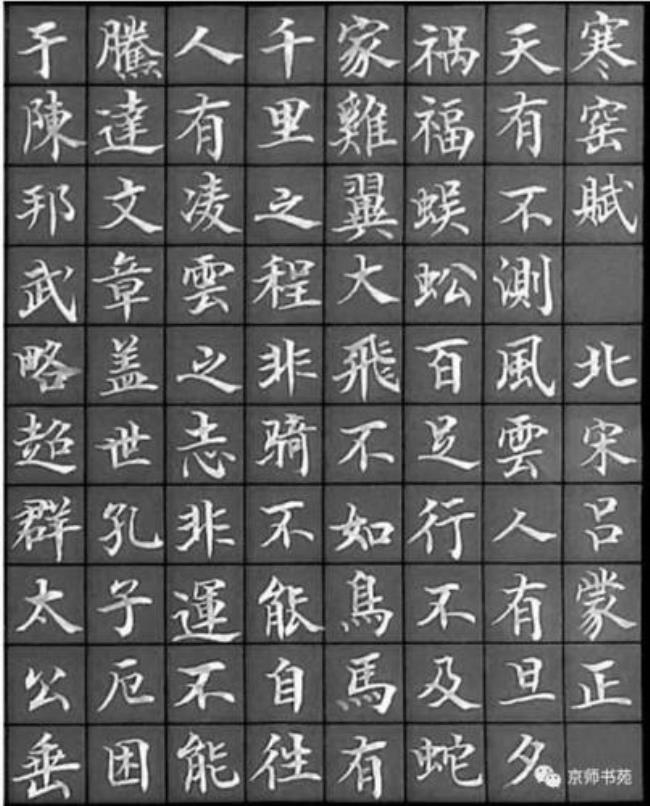 寒窑賦 北宋吕蒙正
天有不測風雲人有旦夕
祸福蜈蚣百足行不及蛇
家雞翼大飛不如鳥馬有
千里之程非骑不能自往
人有凌雲之志非運不能
騰達文章盖世孔子厄困
于陳邦武略超群太公垂
京师书苑